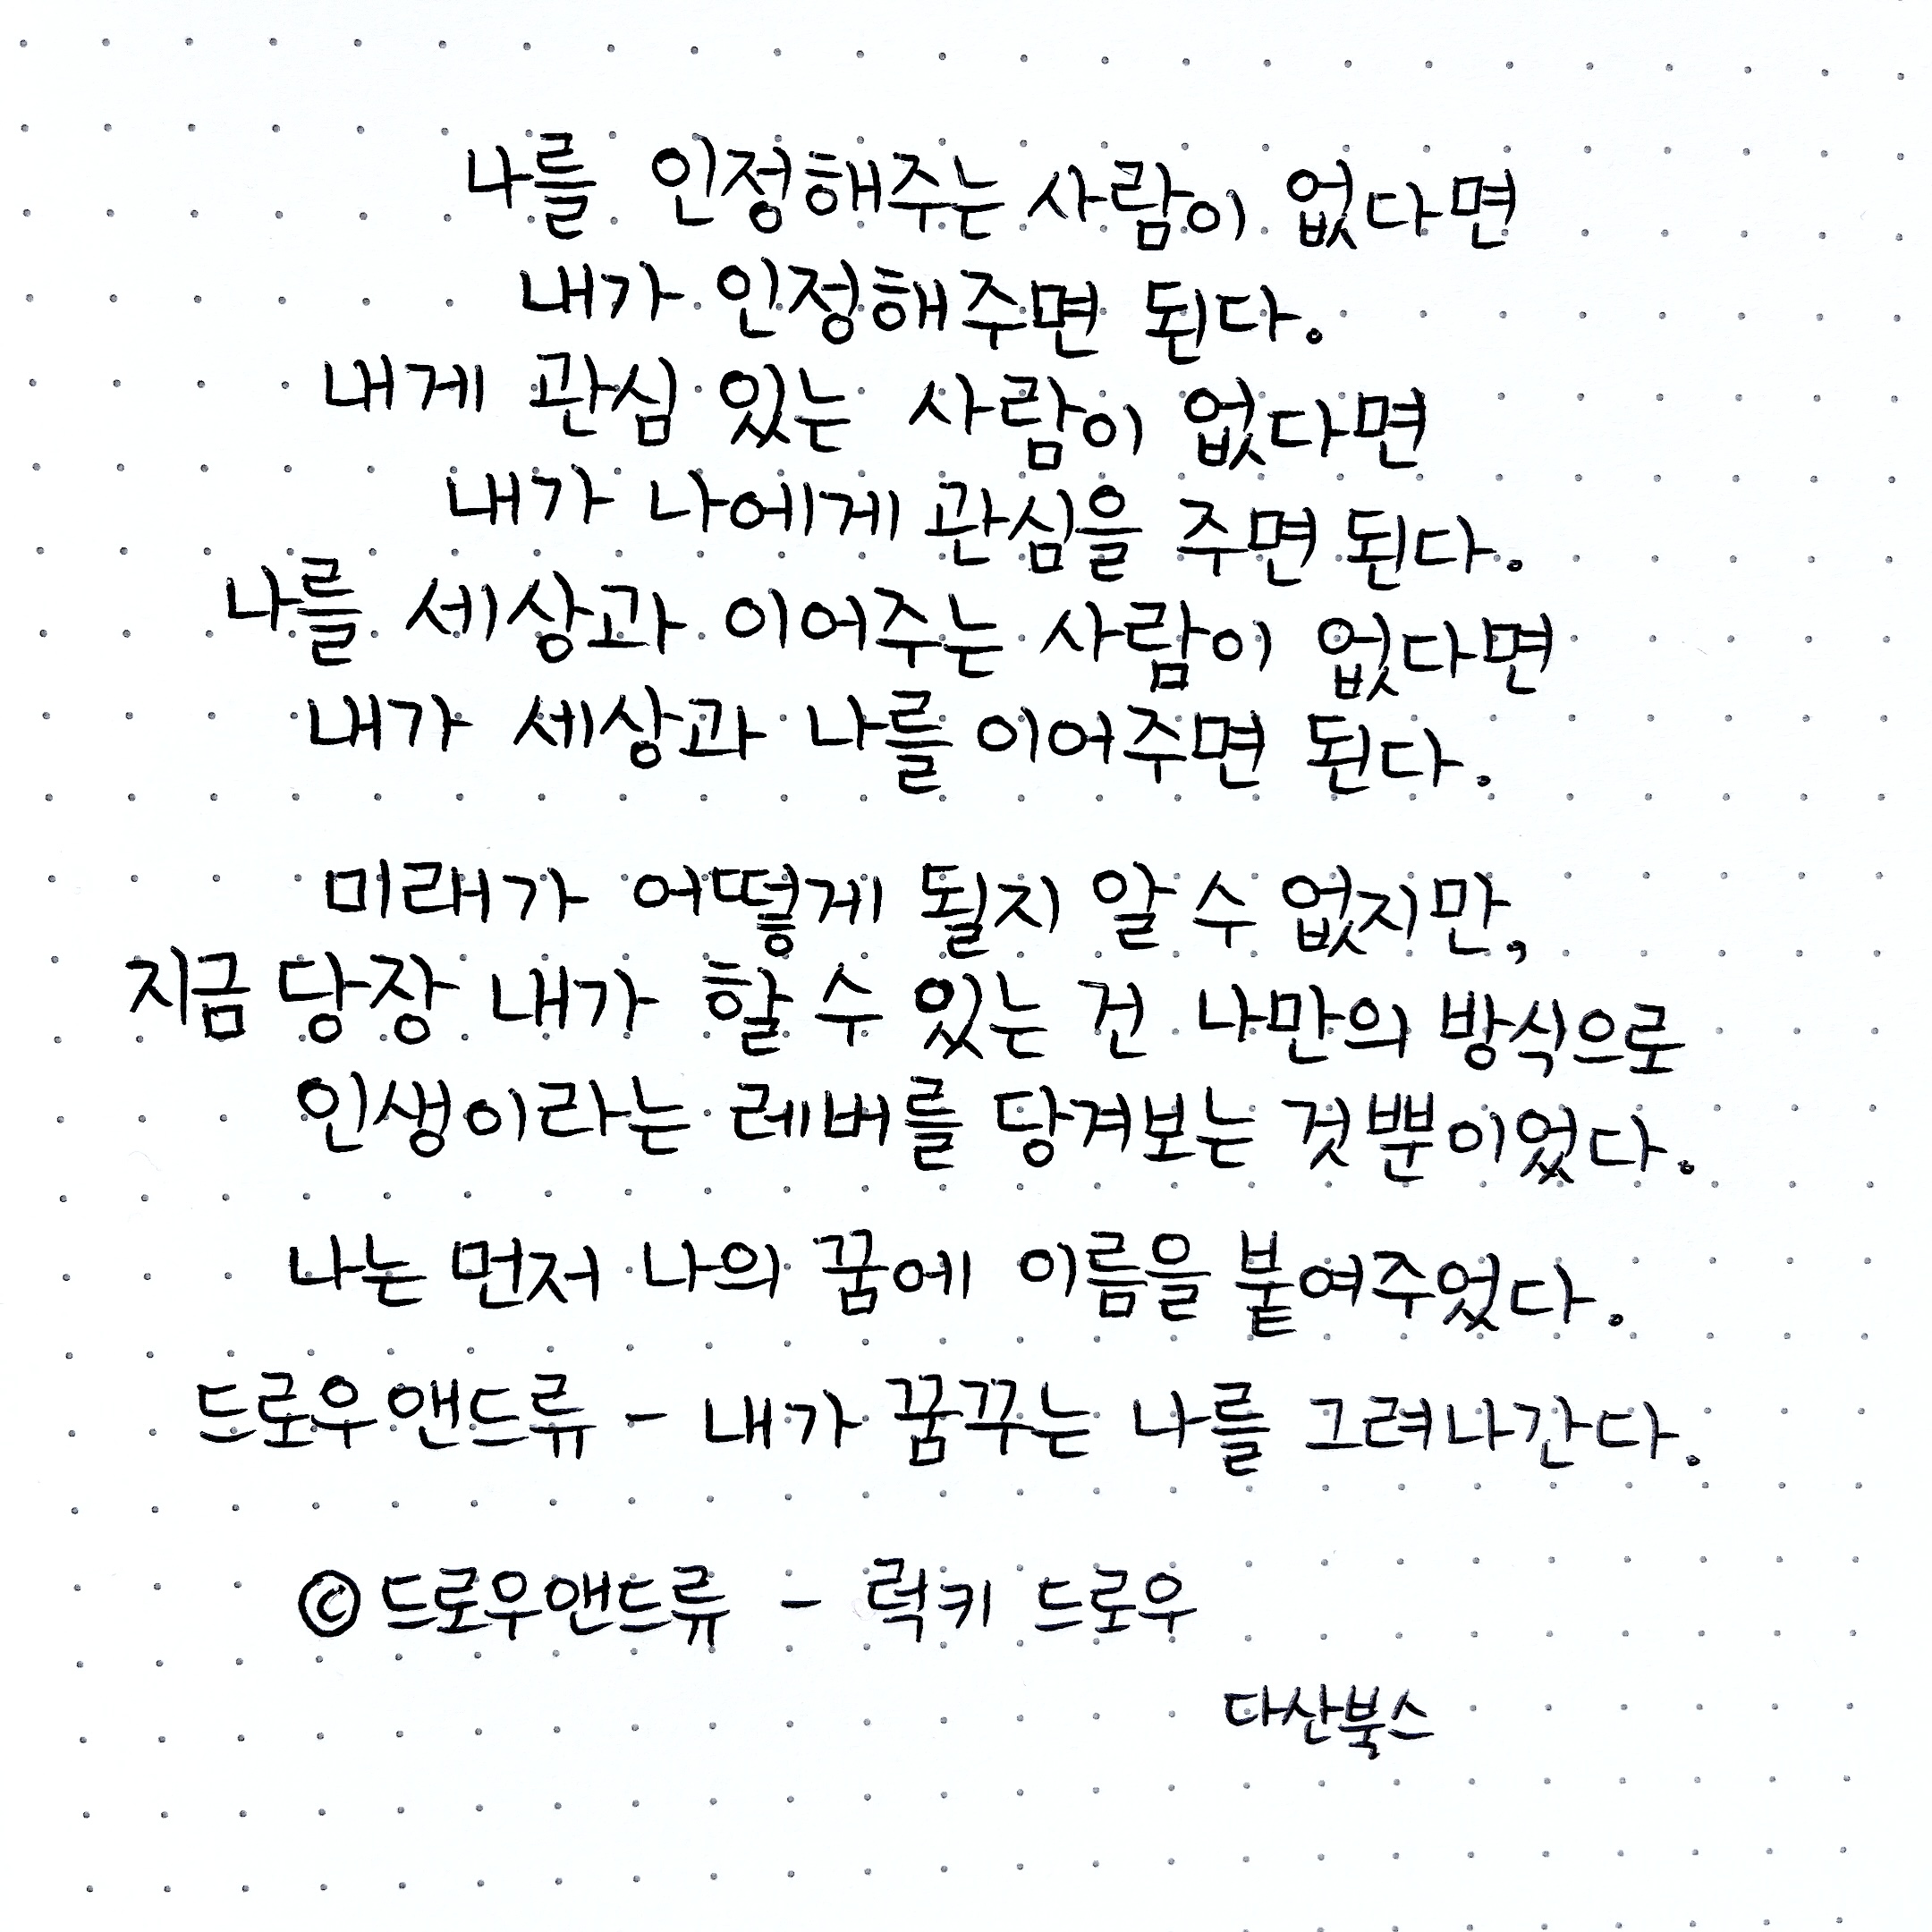 나를 인정해주는 사람이 없다면
내가 인정해주면 된다.
내게 관심 있는 사람이 없다면
내가 나에게 관심을 주면 된다.
나를 세상과 이어주는 사람이 없다면
내가 세상과 나를 이어주면 된다.
미래가 어떻게 될지 알 수 없지만,
지금 당장 내가 할 수 있는 건 나만의 방식으로
인생이라는 레버를 당겨보는 것뿐이었다.
나는 먼저 나의 꿈에 이름을 붙여주었다.
드로우앤드류 - 내가 꿈꾸는 나를 그려나간다.
© 드로우앤드류 - 럭키 드로우
다산북스